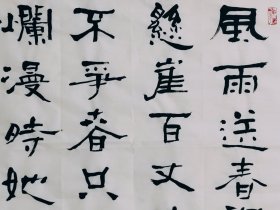 風雨送春
懸崖百丈
不爭春只
爛漫時她